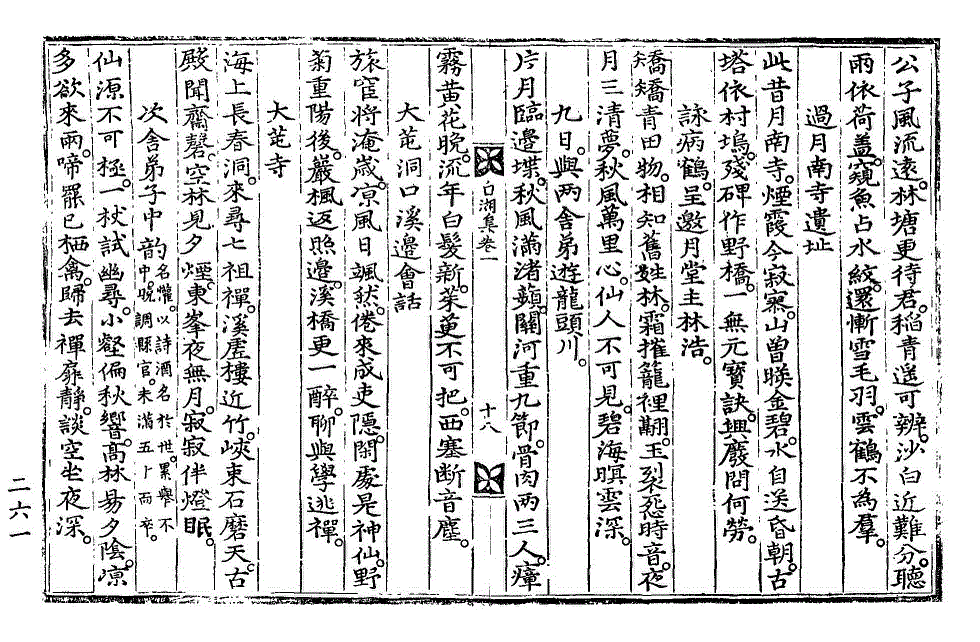 公子風流遠。林塘更待君。稻青遥可辨。沙白近難分。聽
雨依荷盖。窺魚占水紋。還慚雪毛羽。雲鶴不為羣。
過月南寺遺址
此昔月南寺。煙霞今寂寞。山曾暎金碧。水自送昏朝。古
塔依村塢。殘碑作野橋。一無元寶訣。興廢問何勞。
詠病鶴。呈邀月堂主林浩。
矯矯青田物。相知舊姓林。霜摧籠裡翮。玉裂怨時音。夜
月三清夢。秋風萬里心。仙人不可見。碧海暝雲深。
九日。與兩舍弟遊龍頭川。
片月臨邊堞。秋風滿渚蘋。關河重九節。骨肉兩三人。瘴
白湖集卷一
十八
霧黄花晚。流年白髮新。茱萸不可把。西塞断音塵。
大芚洞口溪邊會話
旅宦將淹歲。凉風日颯然。倦來成吏隱。閑處是神仙。野
菊重陽後。巖楓返照邊。溪橋更一醉。聊與學逃禪。
大芚寺
海上長春洞。來尋七祖禪。溪虛樓近竹。峽東石磨天。古
殿聞齋磬。空林見夕煙。東峯夜無月。寂寂伴燈眠。
次舍弟子中韵名懽。以詩酒名於世。累舉不中。晚調縣官。未滿五十而卒。
仙源不可極。一杖試幽尋。小壑偏秋響。高林易夕陰。凉
多欲來雨。啼罷已栖禽。歸去禪扉靜。談空坐夜深。
二六一